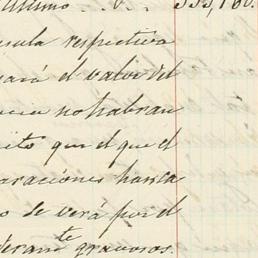 ultimo . . . 333,160.
sula respectiva
sará el valor del
ncia no habran
ito que el que el
araciones hasta
o se verá por el
deram te gravosos.